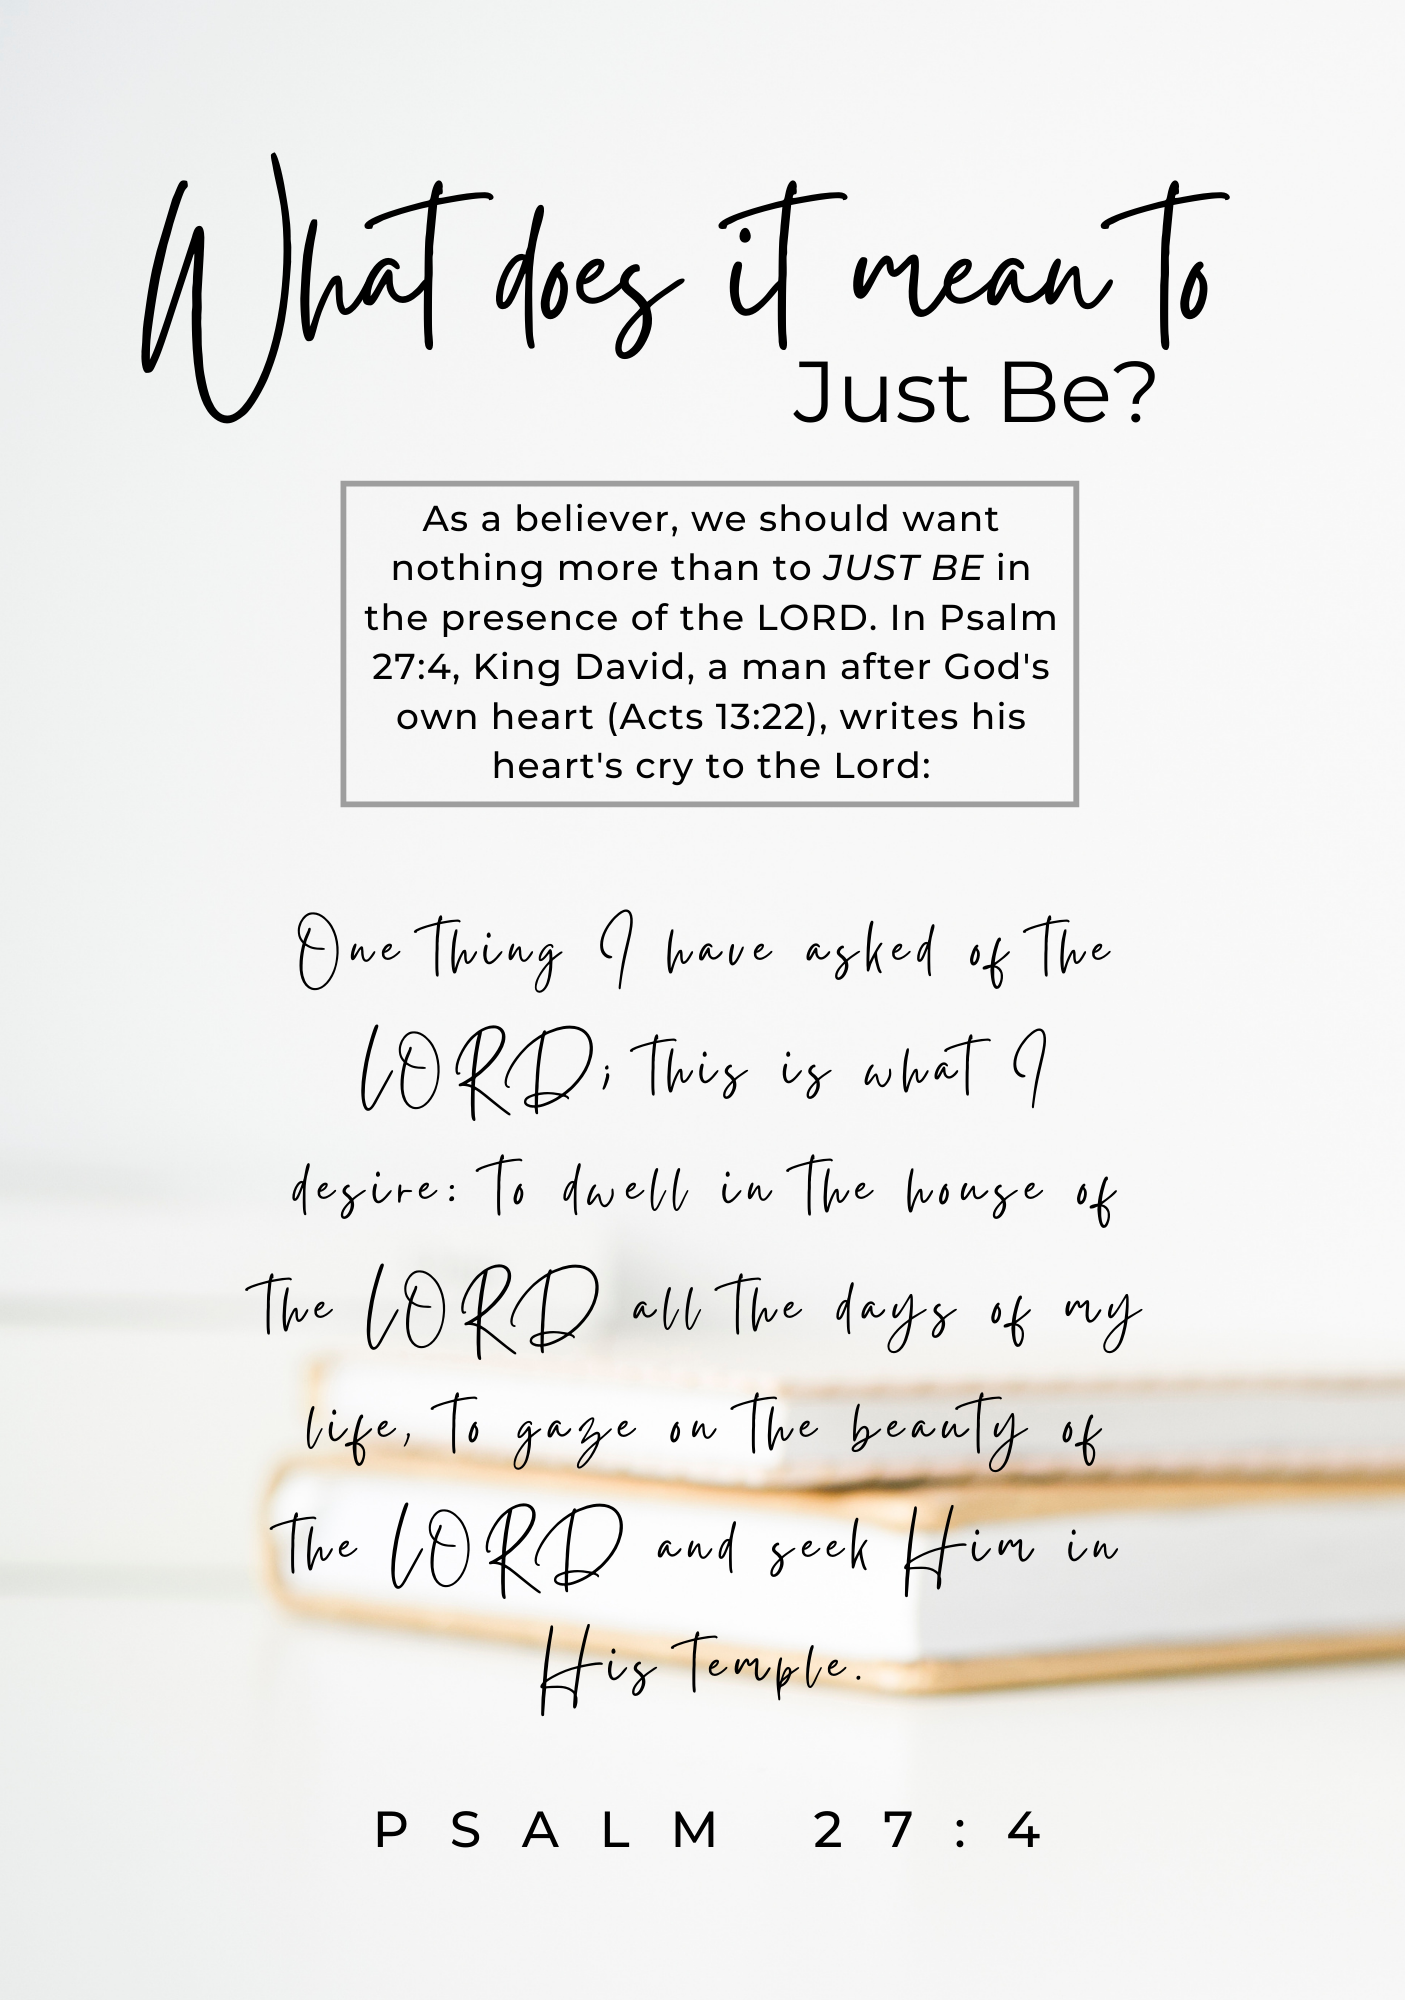 What does it mean to
Just Be?
As a believer, we should want
nothing more than to JUST BE in
the presence of the LORD. In Psalm
27:4, King David, a man after God's
own heart (Acts 13:22), writes his
heart's cry to the Lord:
One thing I have asked of the
LORD; this is what I
desire: to dwell in the house of
the LORD all the days of my
life, to gaze on the beauty of
the LORD and seek Him in
His temple.
PSALM 27:4